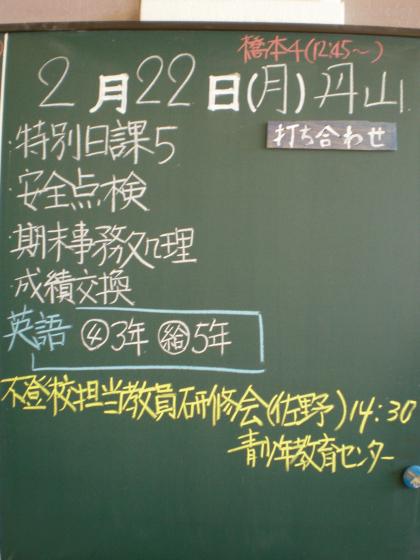 橋本4(12:45〜)
2月22日(月)丹山
打ち合わせ
・特別日課5
・安全点検
・期末事務処理
・成績交換
英語 ④3年 ㊗5年
不登校担当教員研修会(佐野)14:30
青少年教育センター